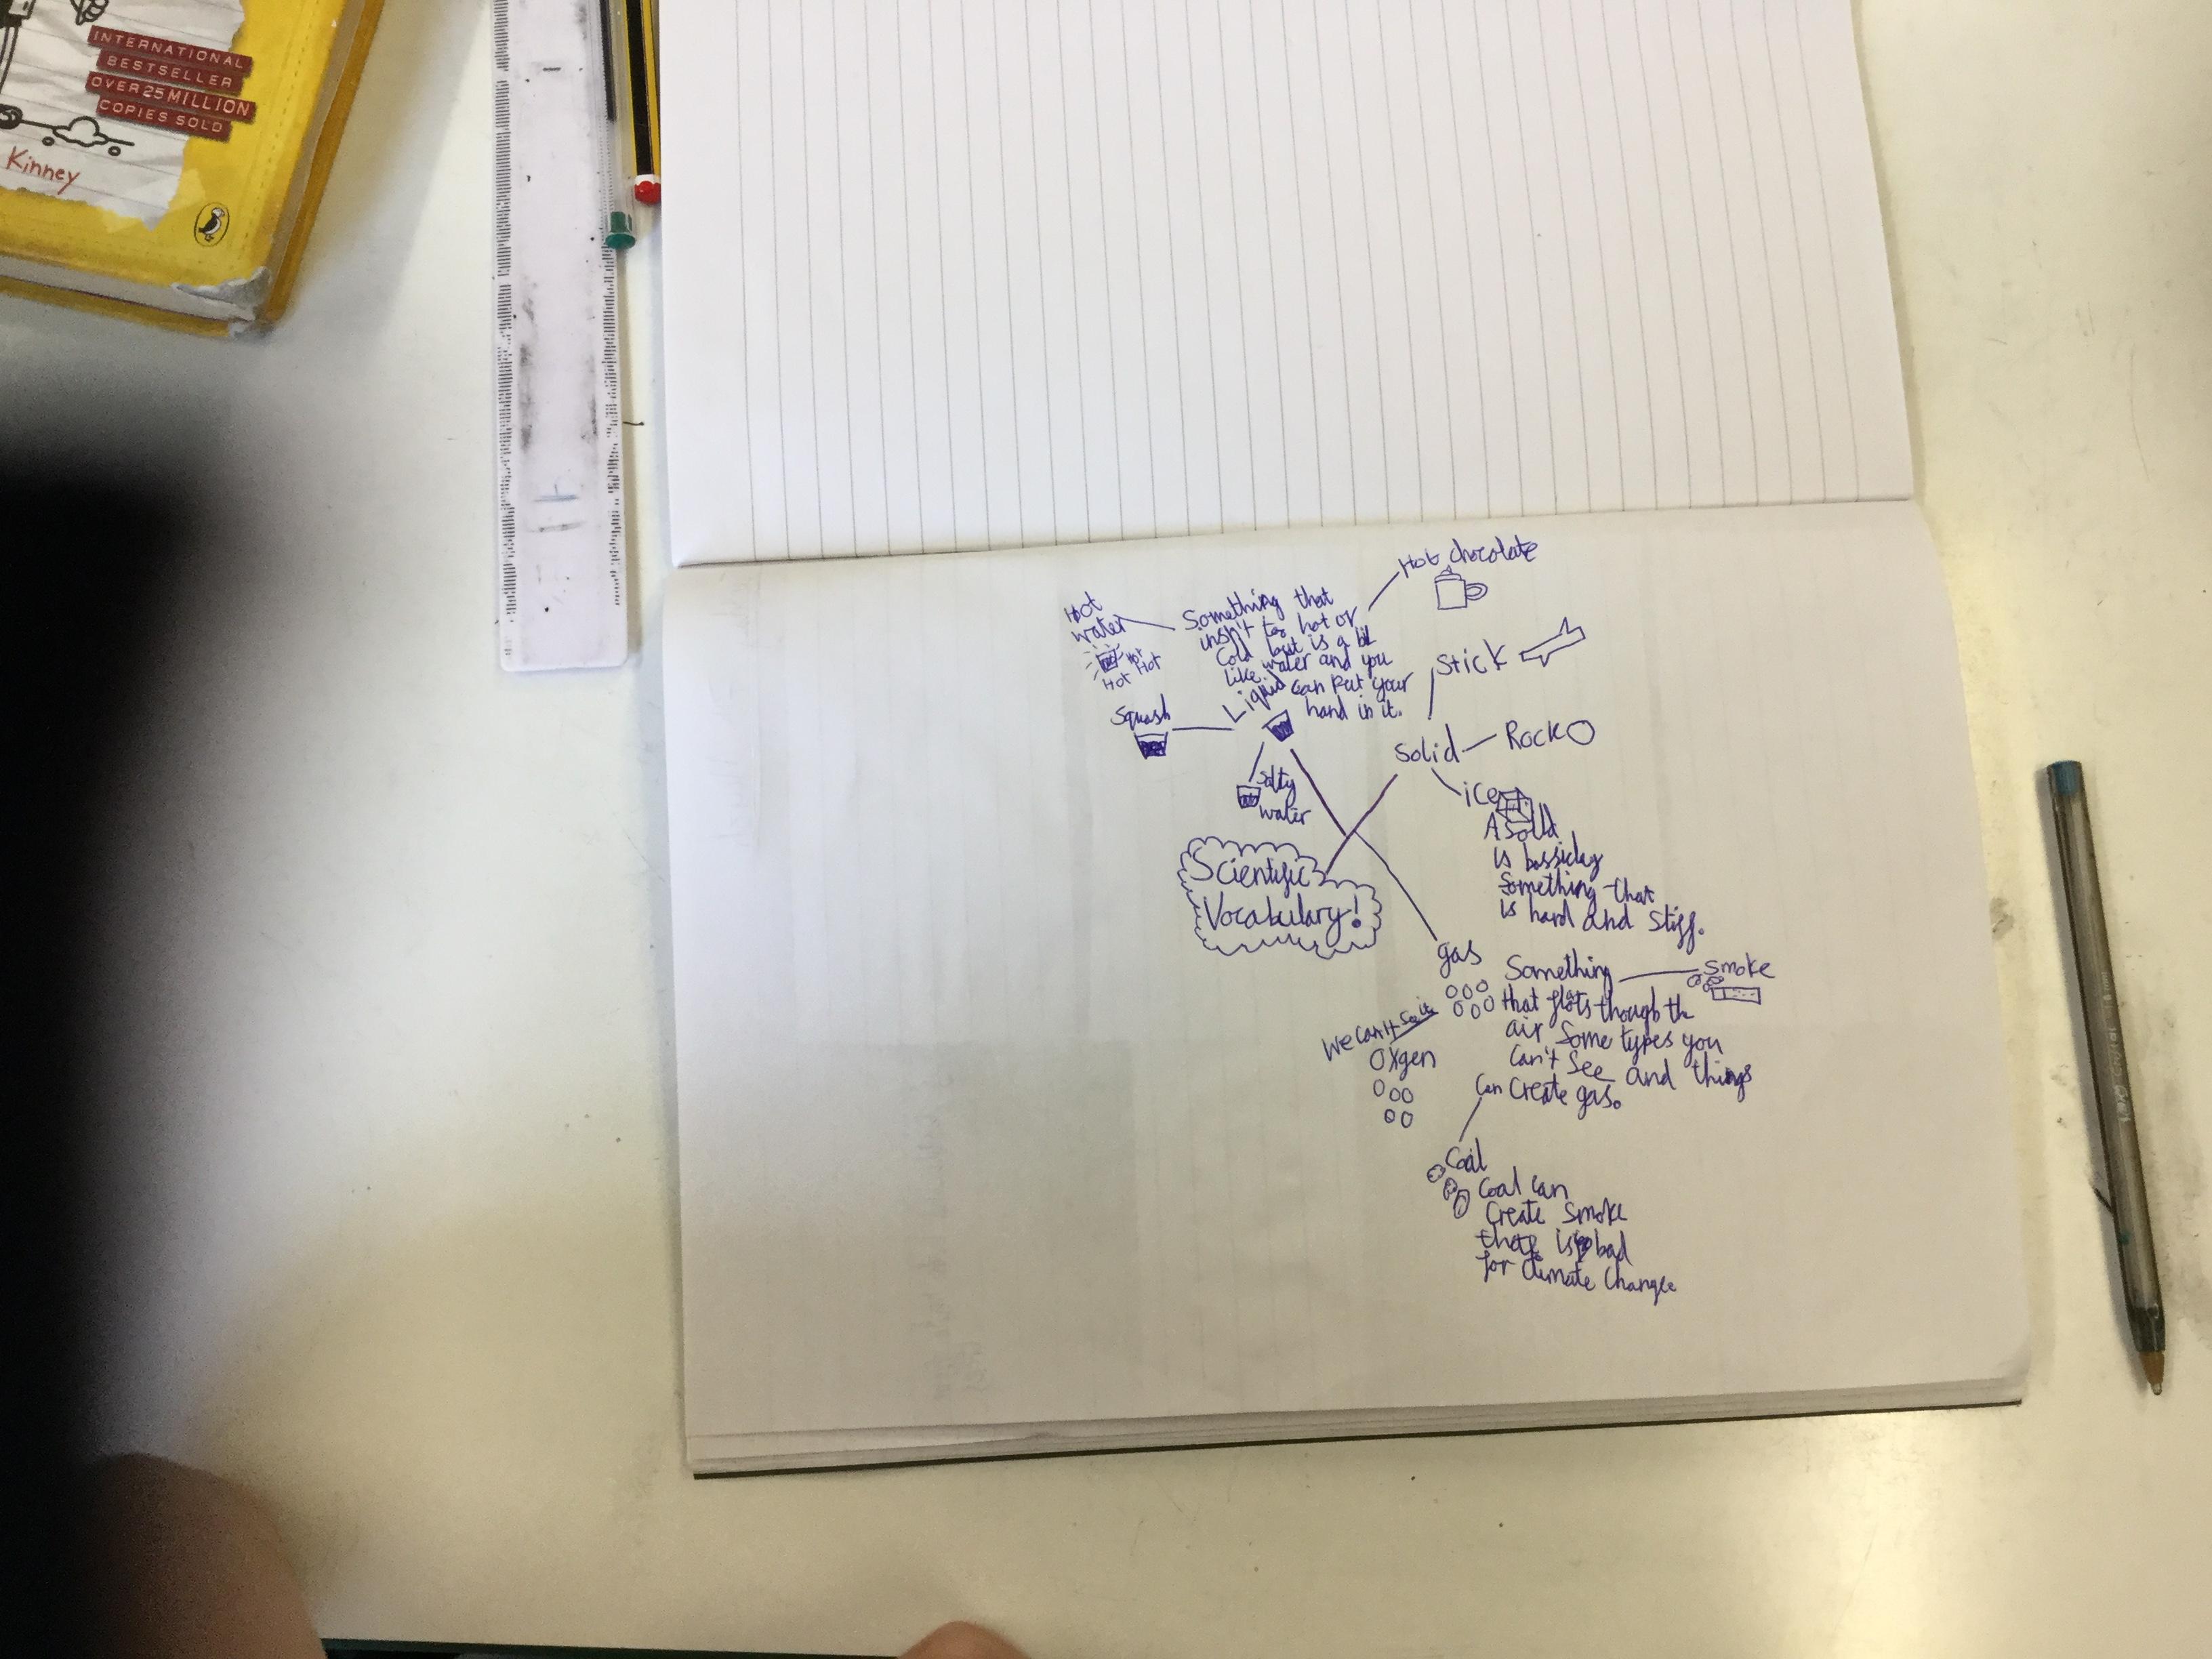 INTERNATIONAL
BESTSELLER
OVER 25 MILLION
COPIES SOLD
Kinney
Hot chocolate
Hot
water
Hot
Hot
Hot
Something that
insn't too hot or
Cold but is a bit
like water and you
can put your
hand in it.
Liquid
Squash
Salty
water
Stick
Solid
Rock
ice
A Solid
is bassiclay
Something that
is hard and Stiff.
Scientific
Vocabulary!
gas
Something
that flots though th
air Some types you
Can't See and things
Can Create gas.
Smoke
We can't See it
Oxgen
Coal
Coal can
Create Smoke
is bad
for Climate Change